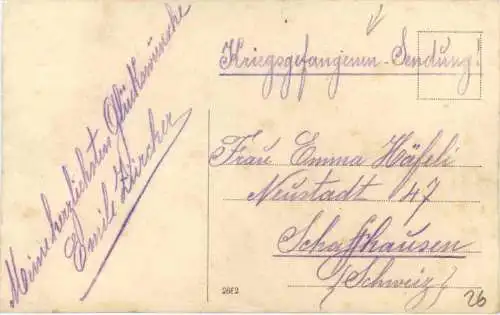 Meine herzlichsten Glückwünsche
Emile Zürcher
Kriegsgefangenen-Sendung!
Frau Emma Häfeli
Neustadt 47
Schaffhausen
(Schweiz)
26E2
26